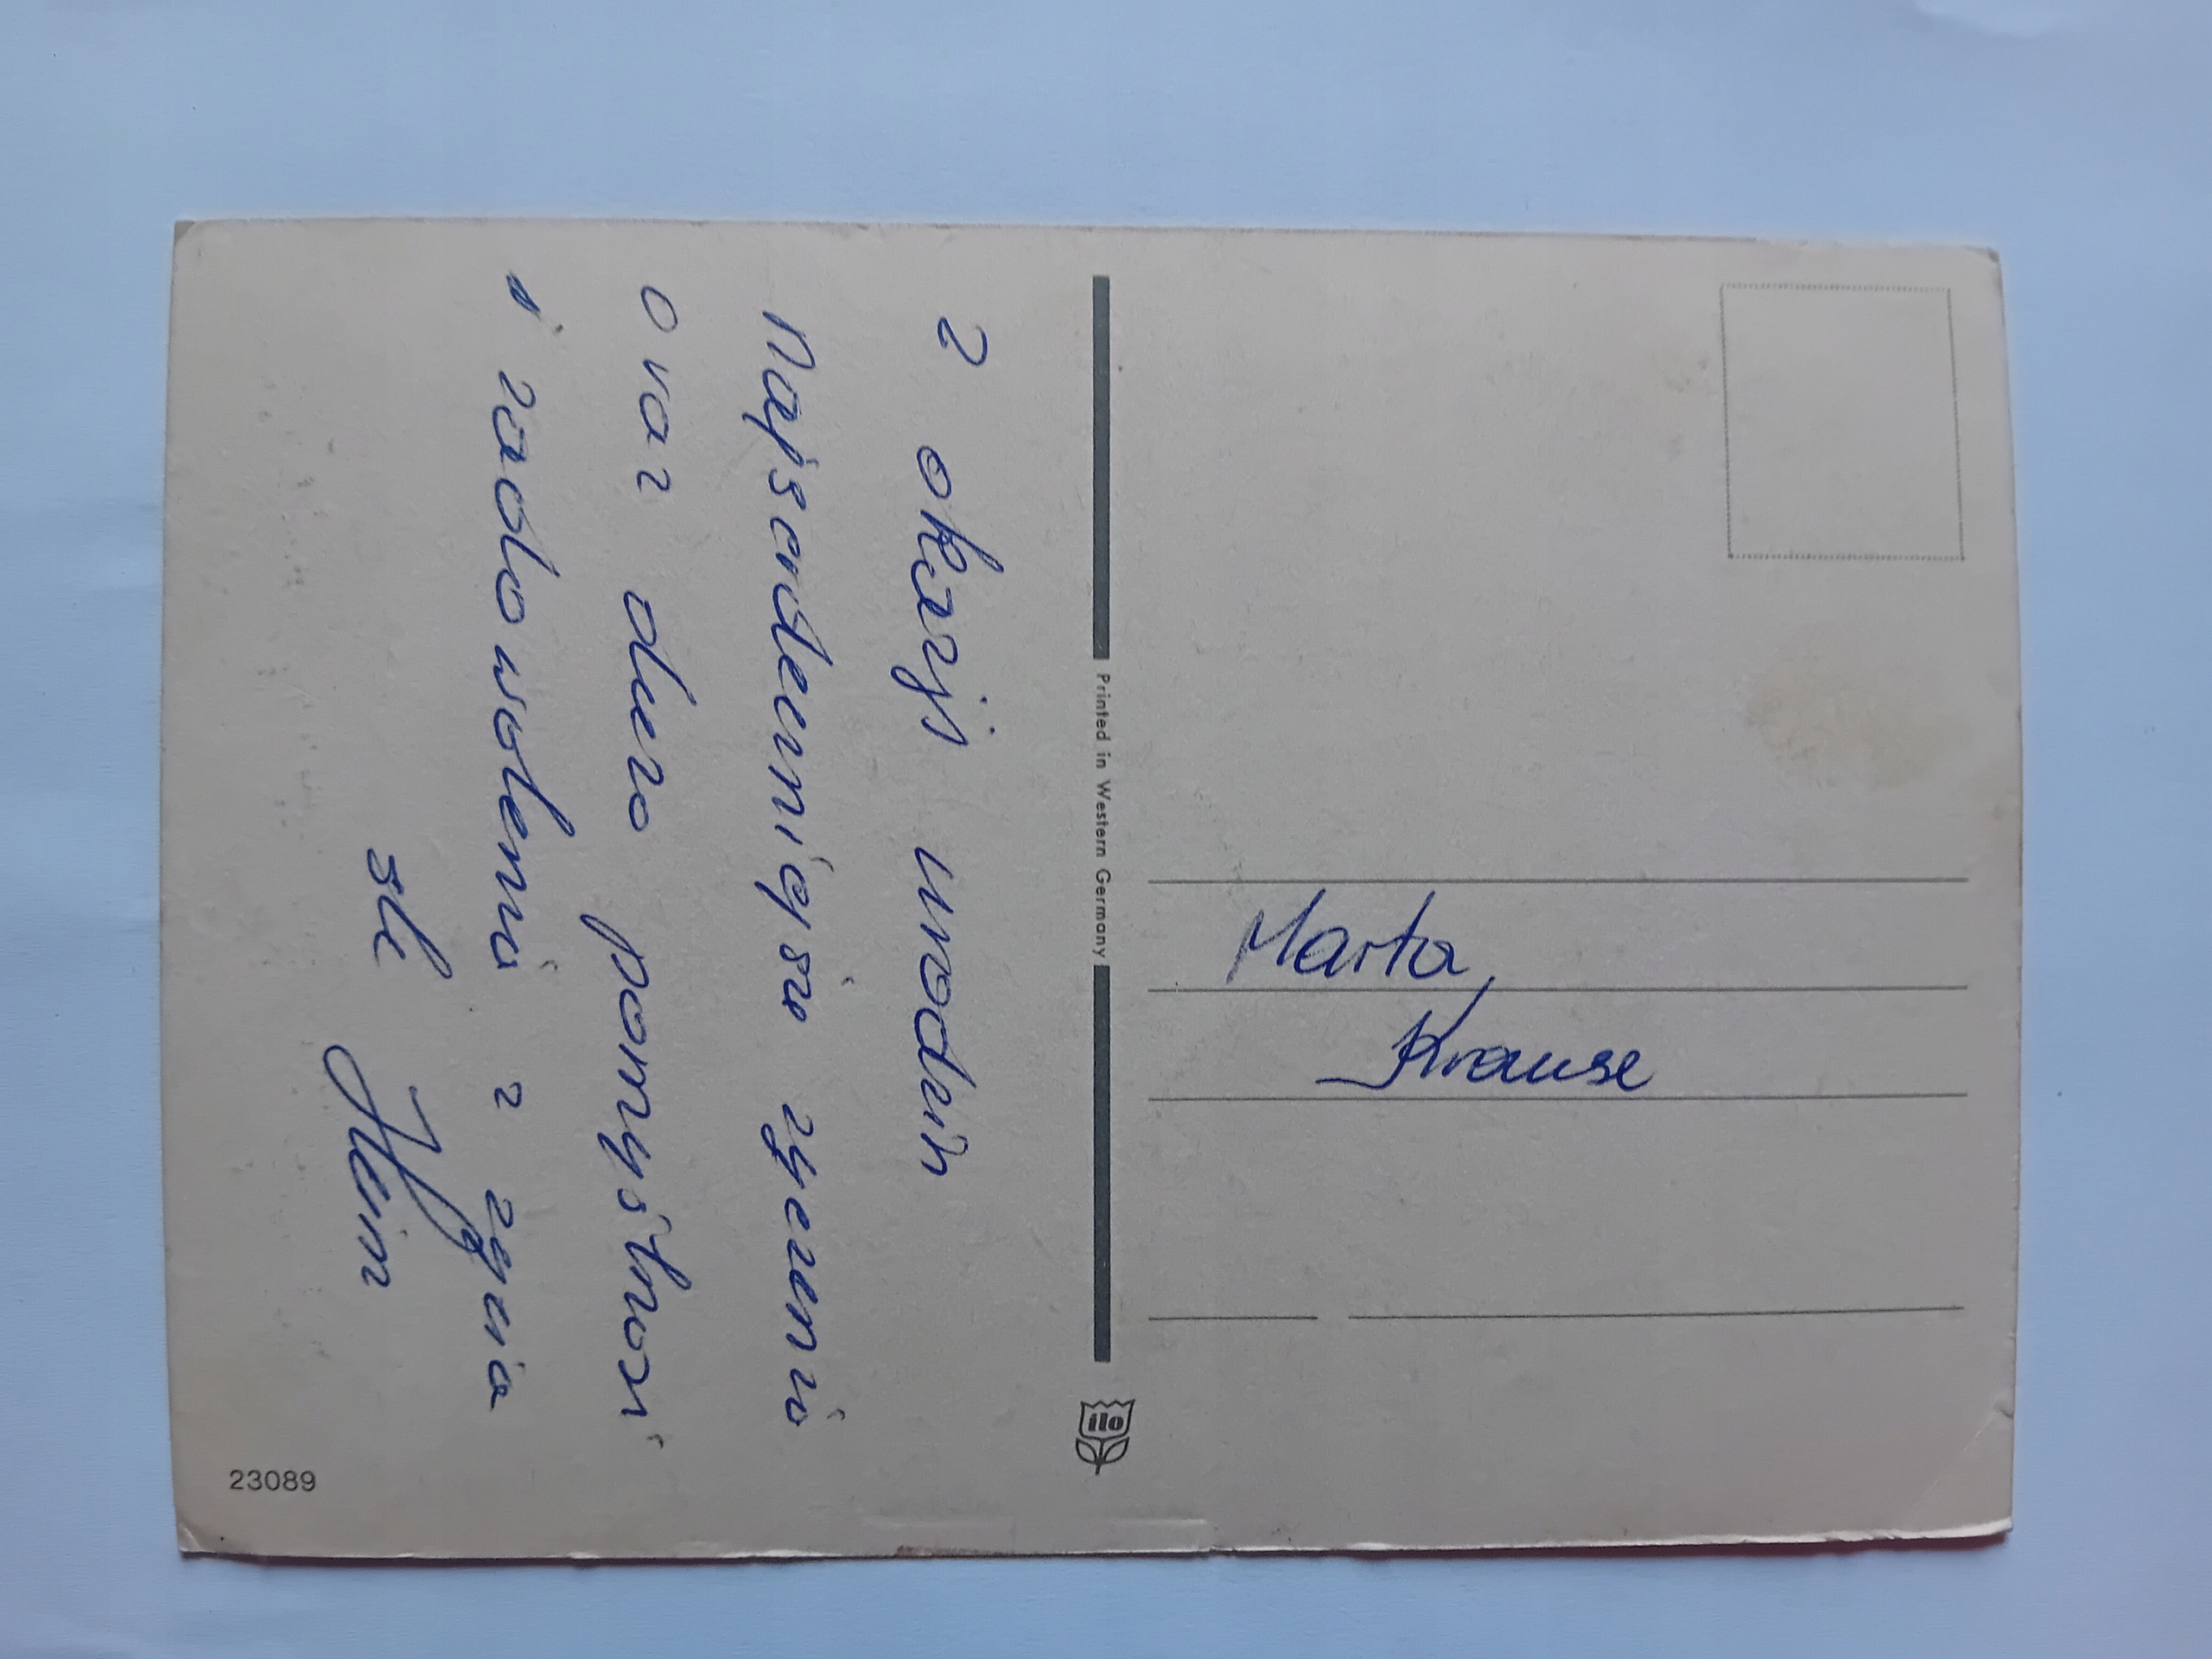 Z okazji urodzin
Najserdeczniejsze zyczenia
oraz duzo pomyślności
i zadowolenia z zycia
śle Hein
Printed in Western Germany
Marta
Krause
ilo
23089